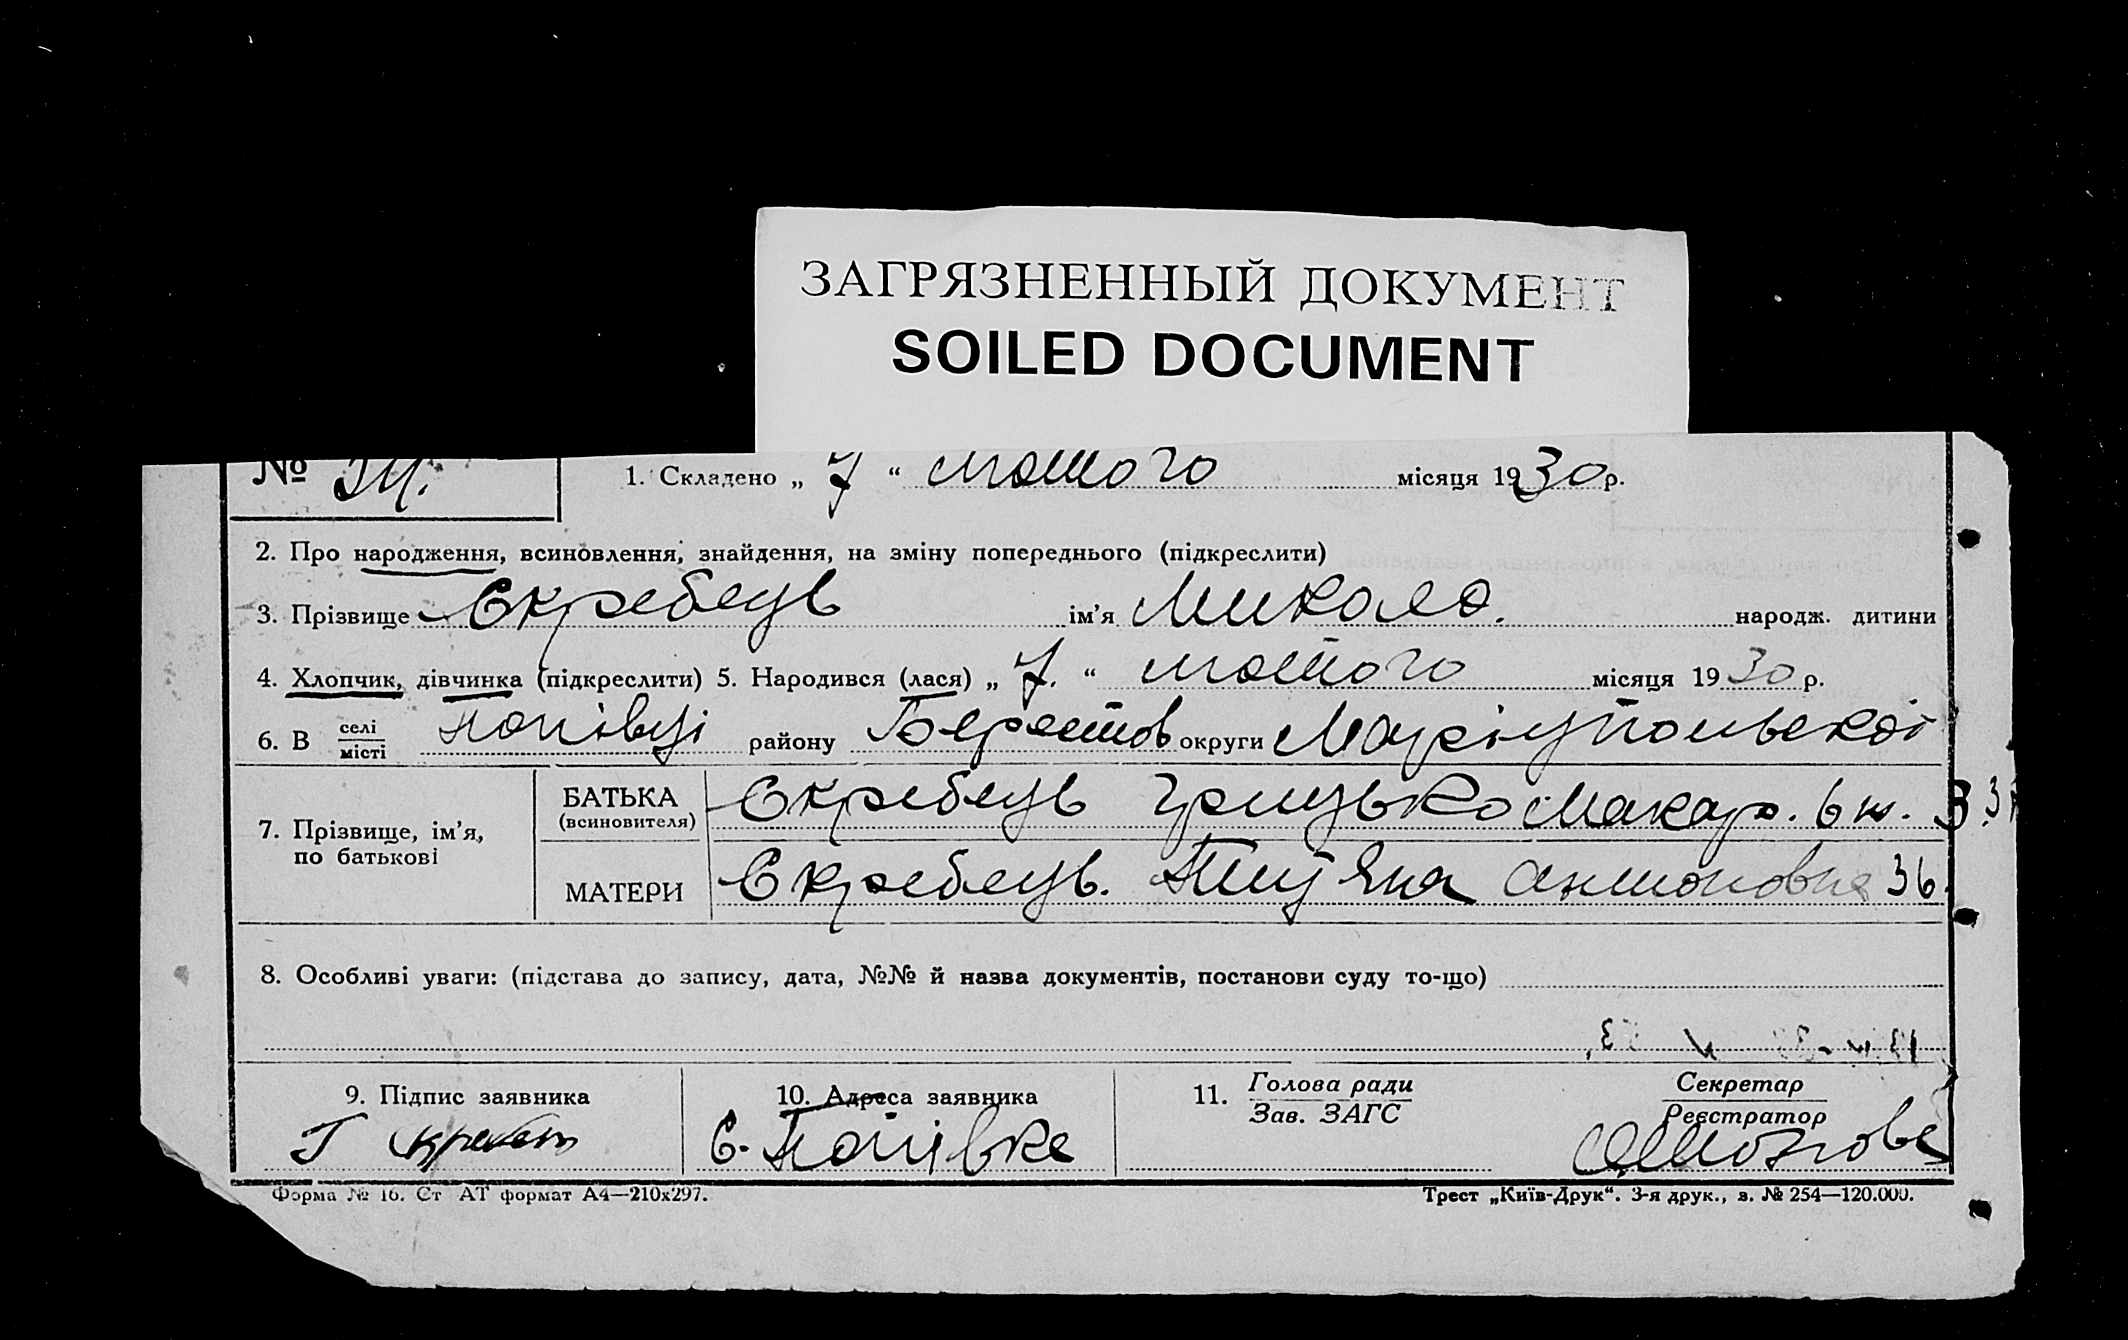 ЗАГРЯЗНЕННЫЙ ДОКУМЕНТ
SOILED DOCUMENT
№ 1. Складено „ 7 “ лютого місяця 1930 р.
2. Про народження, всиновлення, знайдення, на зміну попереднього (підкреслити)
3. Прізвище Скребець ім'я Микола. народж. дитини
4. Хлопчик, дівчинка (підкреслити) 5. Народився (лася) „ 7. “ лютого місяця 1930 р.
6. В селі місті Попівці району Берестов округи Маріупольської
7. Прізвище, ім'я, по батькові
БАТЬКА (всиновителя) Скребець Грицько Макар.
МАТЕРИ Скребець. 36.
8. Особливі уваги: (підстава до запису, дата, №№ й назва документів, постанови суду то-що)
9. Підпис заявника
10. Адреса заявника
11. Голова ради Зав. ЗАГС
Секретар Реєстратор
Г
с. Попівка
Форма № 16. Ст АТ формат А4—210х297.
Трест „Київ-Друк“. 3-я друк., з. № 254—120.000.